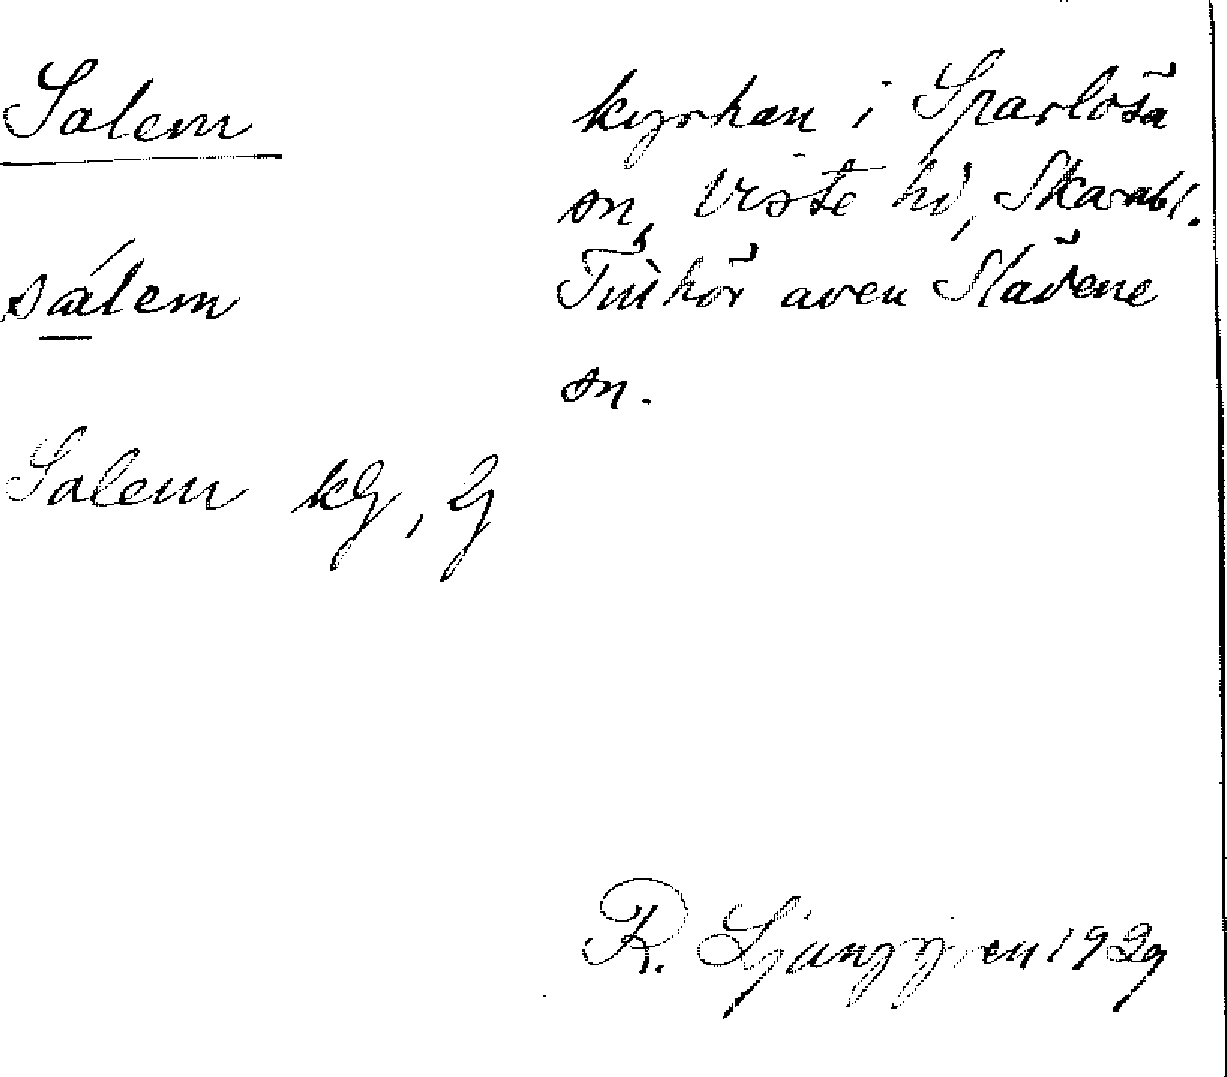 Salem
sálem
Salem kg, g
kyrkan i Sparlösa
sn, Viste hd, Skarabl.
Tillhör även Slädene
sn.
R. Ljunggren 1929